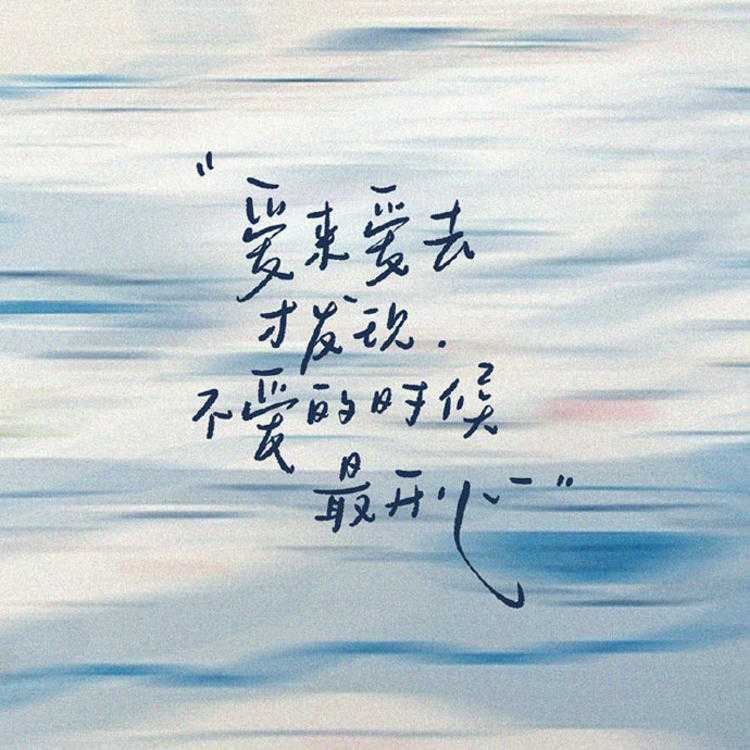 "爱来爱去
才发现.
不爱的时候
最开心"